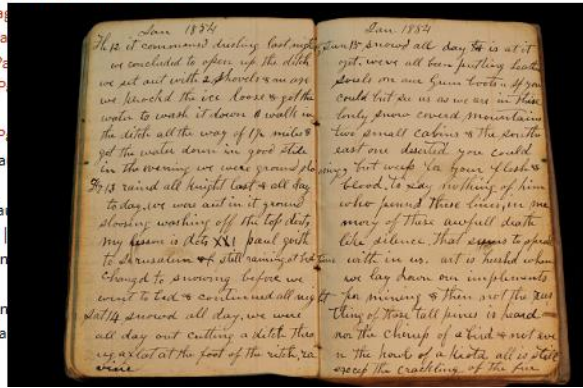 Jan 1884
Th 12 it commenced drizling last night
we concluded to open up the ditch
we set out with 2 shovels & an axe
we knocked the ice loose & got the
water to wash it down & walk in
the ditch all the way of 1½ miles &
got the water down in good stile
in the evening we were ground
13 raind all knight last & all day
today, we were out in it ground
sloosing washing off the top dirt
my lisson is acts XXI paul goith
to Jerusalem & still raining at bed time
changd to snowing before we
went to bed & continued all night
Sat 14, snowd all day, we were
all day out cutting a ditch thro
a lot at the foot of the ra
vine
Jan. 1884
Sun 15 snowd all day & is at it
yet. we've all been putting
soals on our Gum boots if you
could but see us as we are in these
lonly snow coverd mountains
two small cabins & the south
east one deserted you could
but weep for your flesh &
blood, to say nothing of him
who penned these lines, in me
mory of these awfull death
like silence. that seems to
with in us. art is hushd when
we lay down our impliments
for mining & then not the rus
tling of those tall pines is heard
nor the chirup of a bird & not eve
n the howl of a kiota all is still
except the crackling of the fire